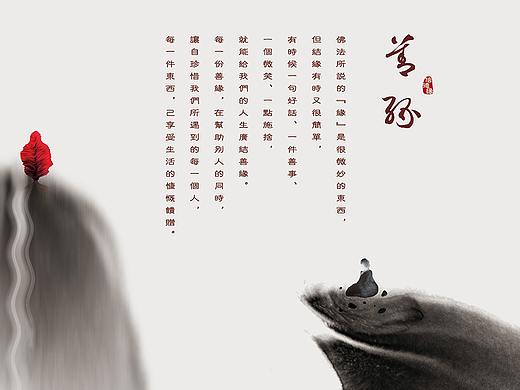 善緣
佛法所說的『緣』是很微妙的東西，
但結緣有時又很簡單，
有時候一句好話、一件善事、
一個微笑、一點施捨，
就能給我們的人生廣結善緣。
每一份善緣，在幫助別人的同時，
讓自珍惜我們所遇到的每一個人，
每一件東西，己享受生活的慷慨饋贈。